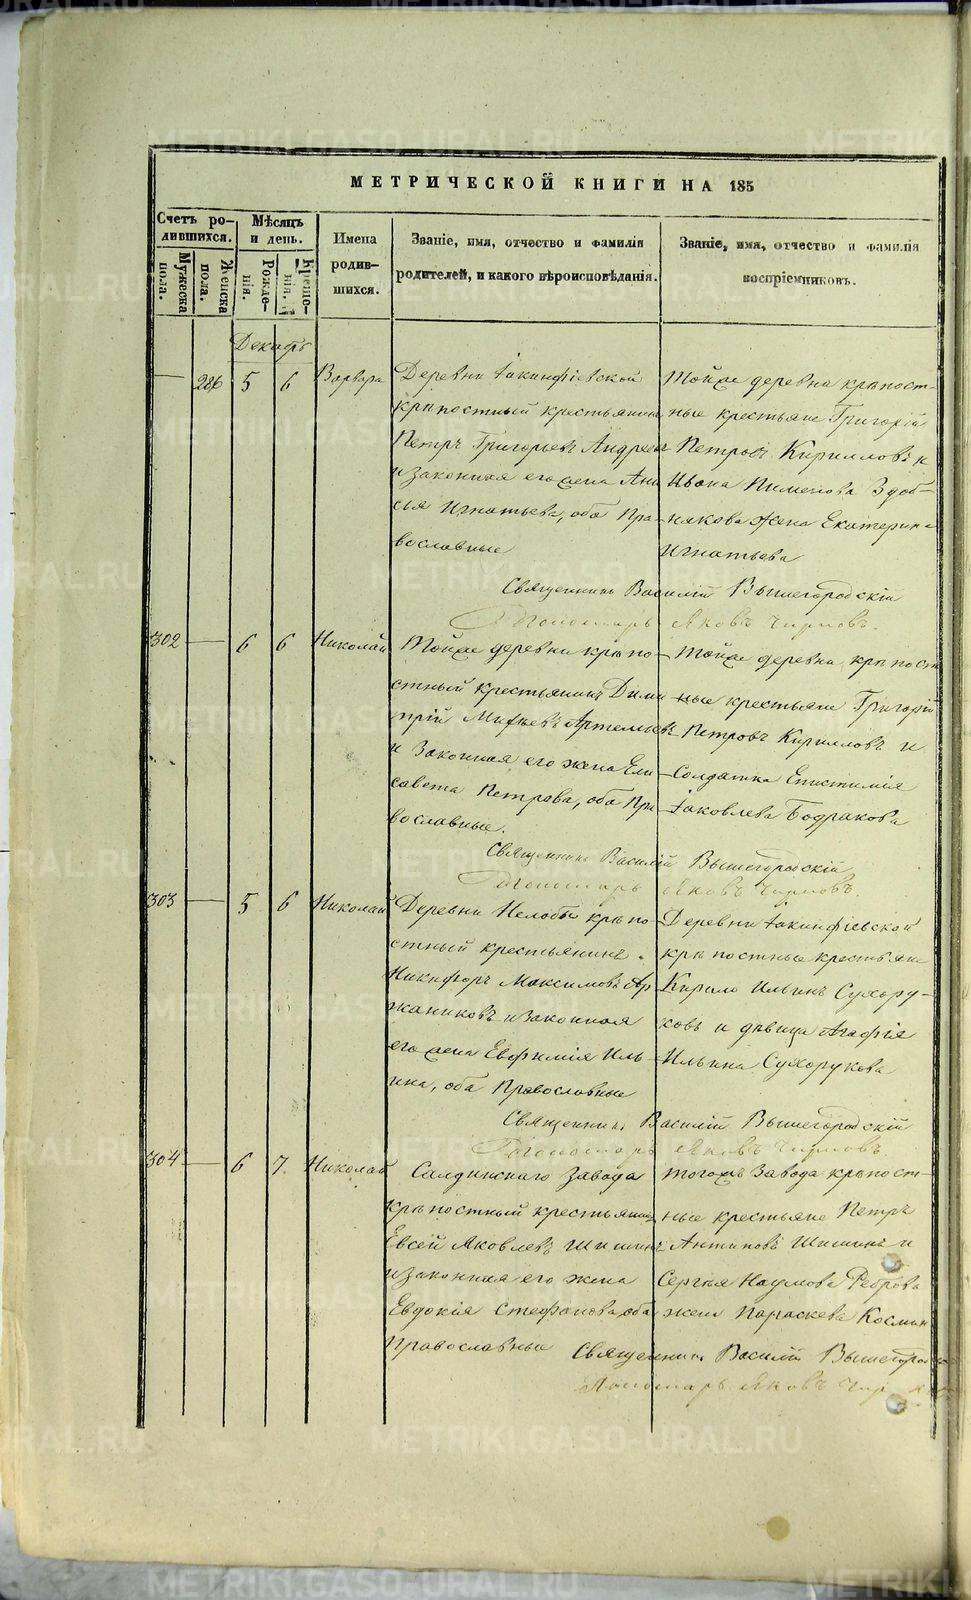 МЕТРИЧЕСКОЙ КНИГИ НА 185
Счетъ ро-
дившихся.
Мужеска пола.
Женска пола.
Мѣсяцъ и день.
Рожде-
нія.
Креще-
нія.
Имена
родив-
шихся.
Званіе, имя, отчество и фамилія
родителей, и какого вѣроисповѣданія.
Званіе, имя, отчество и фамилія
воспріемниковъ.
Декабрь
— 226 5 6 Варвара
Деревни Іакинфіевской
крѣпостный крестьянинъ
Петръ Григорьевъ Андреевъ
и законная его жена Ани
сья Игнатьева, оба Пра-
вославные
Тойже деревни крѣпост-
ные крестьяне Григорій
Петровъ Кирилловъ и
Ивана Пименова Здоб-
някова жена Екатерина
Игнатьева
Священникъ Василій Вышегородскій
Пономарь Яковъ Чирковъ.
302 — 6 6 Николай
Тойже деревни крѣпо-
стный крестьянинъ Дими
трій Михѣевъ Артемьевъ
и законная его жена Ели
савета Петрова, оба Пра
вославные.
Тойже деревни крѣпост
ные крестьяне Григорій
Петровъ Кирилловъ и
Солдатка Епистимія
Іаковлева Бодракова
Священникъ Василій Вышегородскій
Пономарь Яковъ Чирковъ
303 — 5 6 Николай
Деревни Нелобы крѣпо-
стный крестьянинъ
Никифоръ Максимовъ Ар
жаниковъ и законная
его жена Евфимія Иль
ина, оба Православные
Деревни Іакинфіевской
крѣпостные крестьяне
Кирило Ильинъ Сухору-
ковъ и дѣвица Агафія
Ильина Сухорукова
Священникъ Василій Вышегородскій
Пономарь Яковъ Чирковъ
304 — 6 7. Николай
Салдинскаго завода
крѣпостный крестьянинъ
Евсей Яковлевъ Шишинъ
и законная его жена
Евдокія Стефанова, оба
Православные
тогожъ завода крѣпост-
ные крестьяне Петръ
Антиповъ Шишинъ и
Сергѣя Наумова Реброва
жена Параскева Козмин
Священникъ Василій Вышегород
Пономарь Яковъ Чир
METRIKI.GASO-URAL.RU